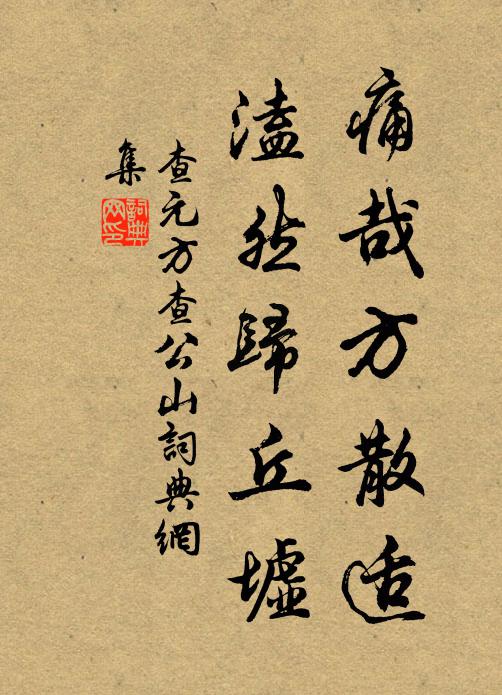 痛哉方散适
溘然歸丘墟
查元方查公山詞典網
集
詞典
网印